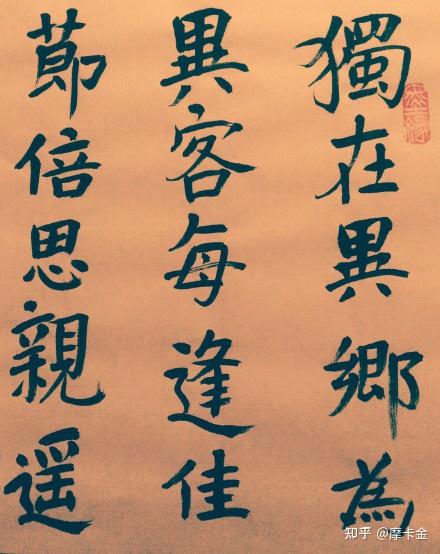 獨在異鄉為
異客每逢佳
節倍思親遥
知乎 @摩卡金